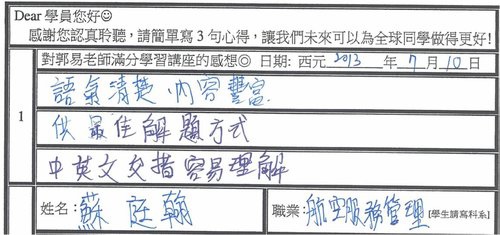 Dear 學員您好☺
感謝您認真聆聽，請簡單寫 3 句心得，讓我們未來可以為全球同學做得更好!
對郭易老師滿分學習講座的感想◎ 日期: 西元 2013 年 7 月 10 日
語氣清楚 內容豐富
1
供最佳解題方式
中英文交措容易理解
姓名: 蘇庭翰 職業: 航空服務管理 [學生請寫科系]